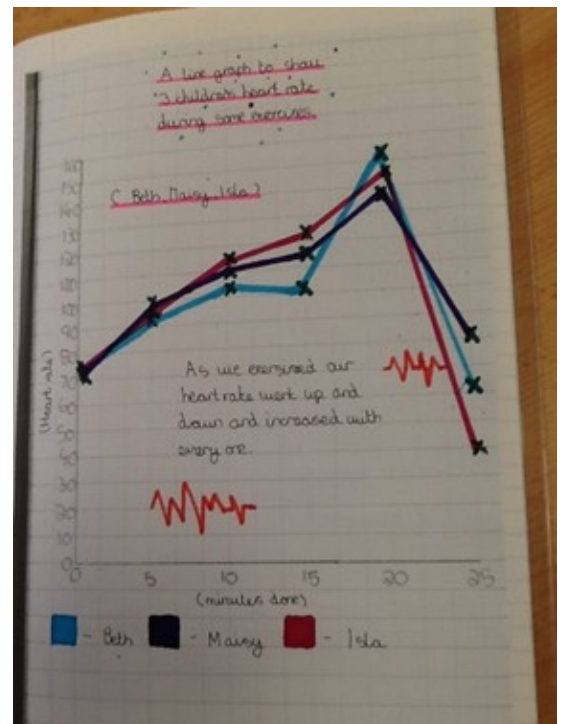 A line graph to show
3 children's heart rate
during some exercises.
( Beth, Maisy, Isla )
160
150
140
130
120
110
100
90
80
70
60
50
40
30
20
10
0
(Heart rate)
As we exersised our
heart rate went up and
down and increased with
every one.
0 5 10 15 20 25
(minutes done)
- Beth - Maisy - Isla